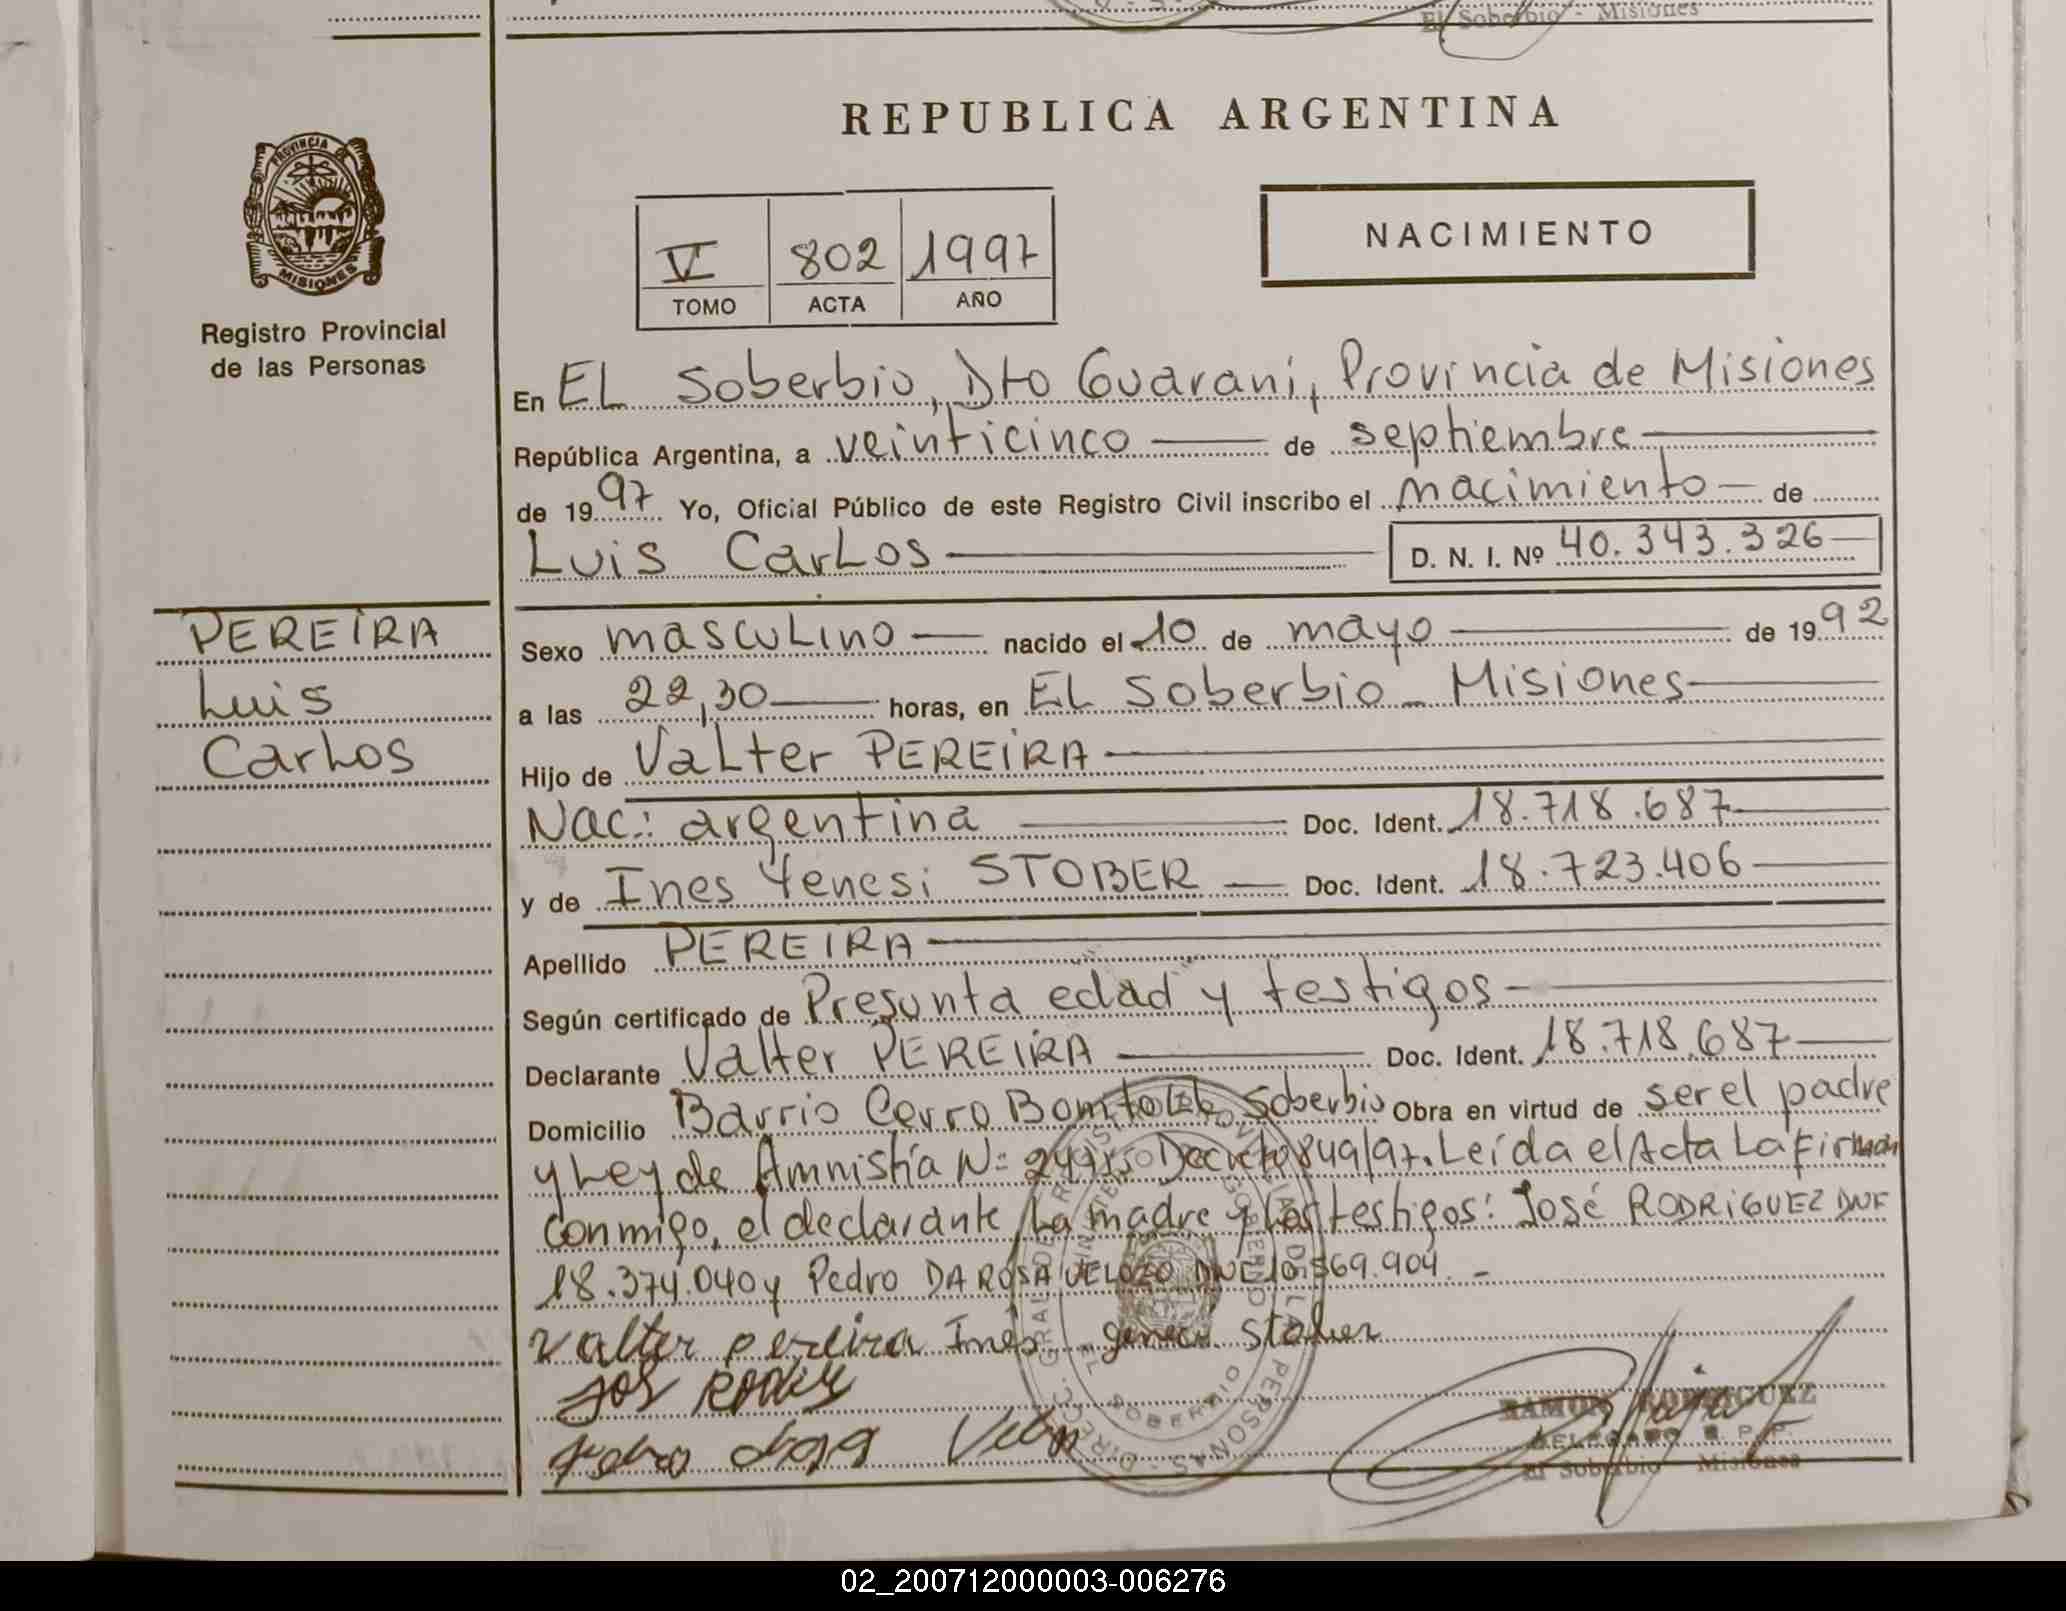 El Soberbio - Misiones
REPUBLICA ARGENTINA
PROVINCIA DE
MISIONES
Registro Provincial
de las Personas
V 802 1997
TOMO ACTA AÑO
NACIMIENTO
En EL Soberbio, Dto Guaraní, Provincia de Misiones
República Argentina, a veinticinco de septiembre
de 1997 Yo, Oficial Público de este Registro Civil inscribo el nacimiento de
Luis Carlos D. N. I. Nº 40.343.326
PEREIRA
Luis
Carlos
Sexo masculino nacido el 10 de mayo de 1992
a las 22,30 horas, en EL Soberbio - Misiones
Hijo de Valter PEREIRA
Nac: argentina Doc. Ident. 18.718.687
y de Ines Yenesi STOBER Doc. Ident. 18.723.406
Apellido PEREIRA
Según certificado de Presunta edad y testigos
Declarante Valter PEREIRA Doc. Ident. 18.718.687
Domicilio Barrio Cerro Bonito El Soberbio Obra en virtud de ser el padre
y Ley de Amnistía Nº Decreto 849/97. Leída el Acta La Firman
conmigo, el declarante, La madre y los testigos: José RODRIGUEZ DNE
18.374.040 y Pedro DA ROSA VELOZO DNE 10.569.904. -
Valter pereira Inés Stober
RAMON RODRIGUEZ
DELEGADO R. P. P.
El Soberbio Misiones
02_200712000003-006276